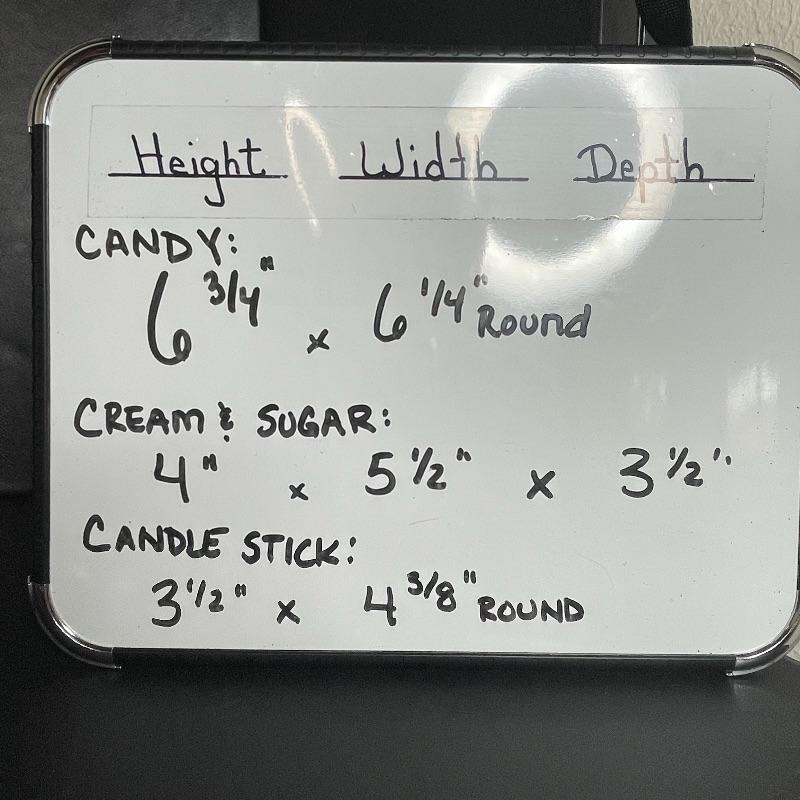 Height Width Depth
CANDY:
6 3/4" x 6 1/4" Round
CREAM & SUGAR:
4" x 5 1/2" x 3 1/2"
CANDLE STICK:
3 1/2" x 4 3/8" ROUND